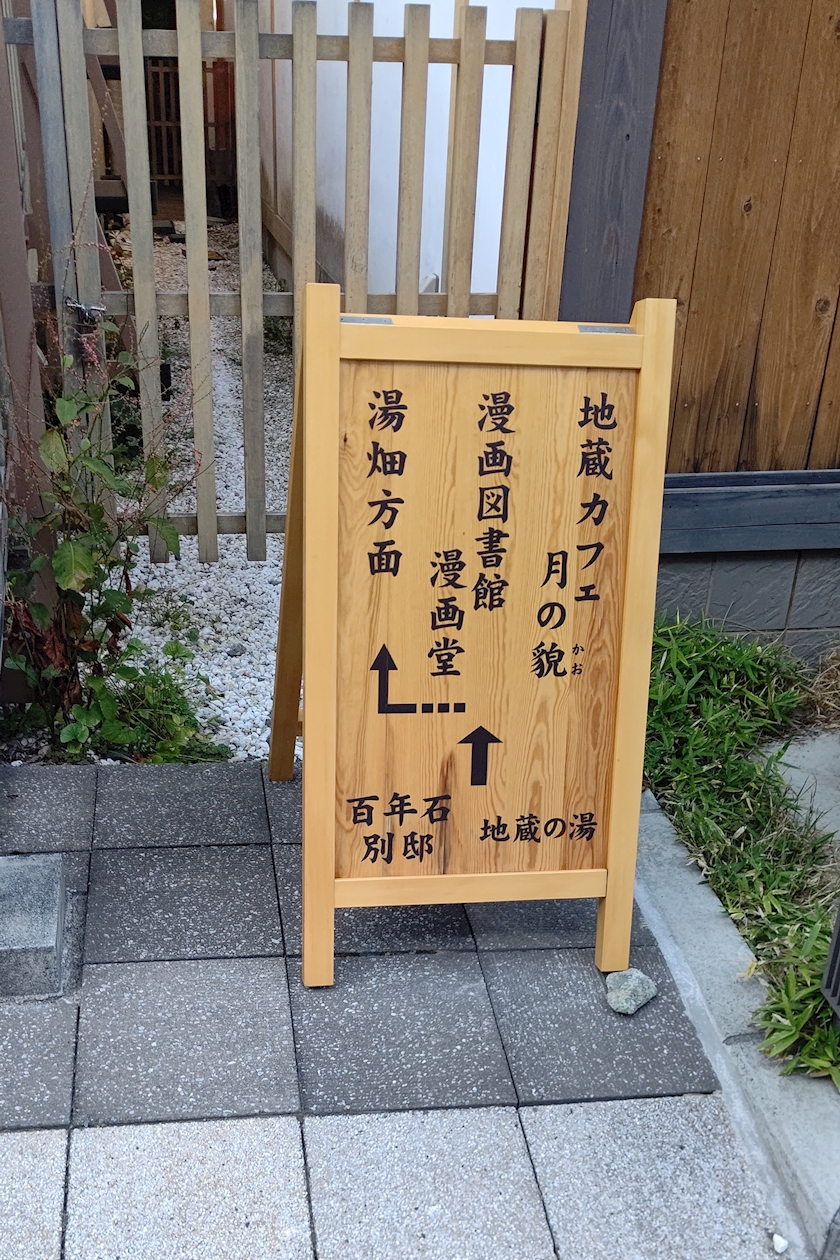 地蔵カフェ
月の貌
かお
漫画図書館
漫画堂
湯畑方面
百年石
別邸
地蔵の湯